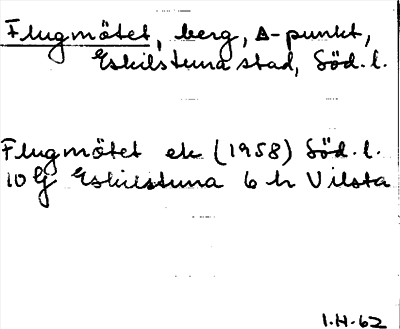 Flugmötet, berg, Δ-punkt,
Eskilstuna stad, Söd. l.
Flugmötet ek (1958) Söd. l.
10 G Eskilstuna 6 h Vilsta
I.H. 62